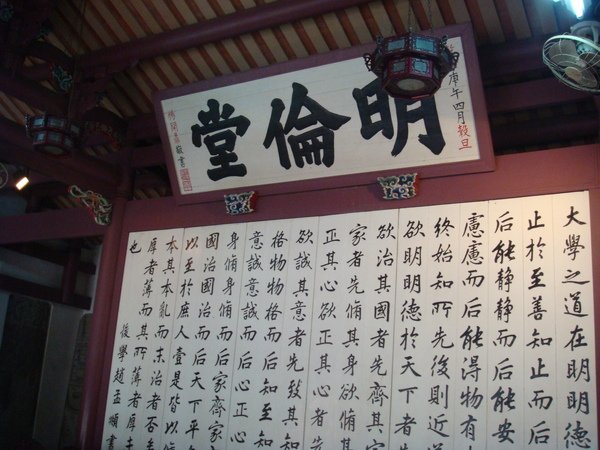 庚午四月穀旦
明倫堂
敬書
大學之道在明明德
止於至善知止而后
后能靜靜而后能安
慮慮而后能得物有
終始知所先後則近道
欲明明德於天下者
欲治其國者先齊其
家者先脩其身欲脩其
正其心欲正其心者先
欲誠其意者先致其知
格物物格而后知至知
意誠意誠而后心正心
身脩身脩而后家齊家
國治國治而后天下平
以至於庶人壹是皆以脩
本其本乱而末治者否
厚者薄而其所薄者厚未
也
後學趙孟頫書